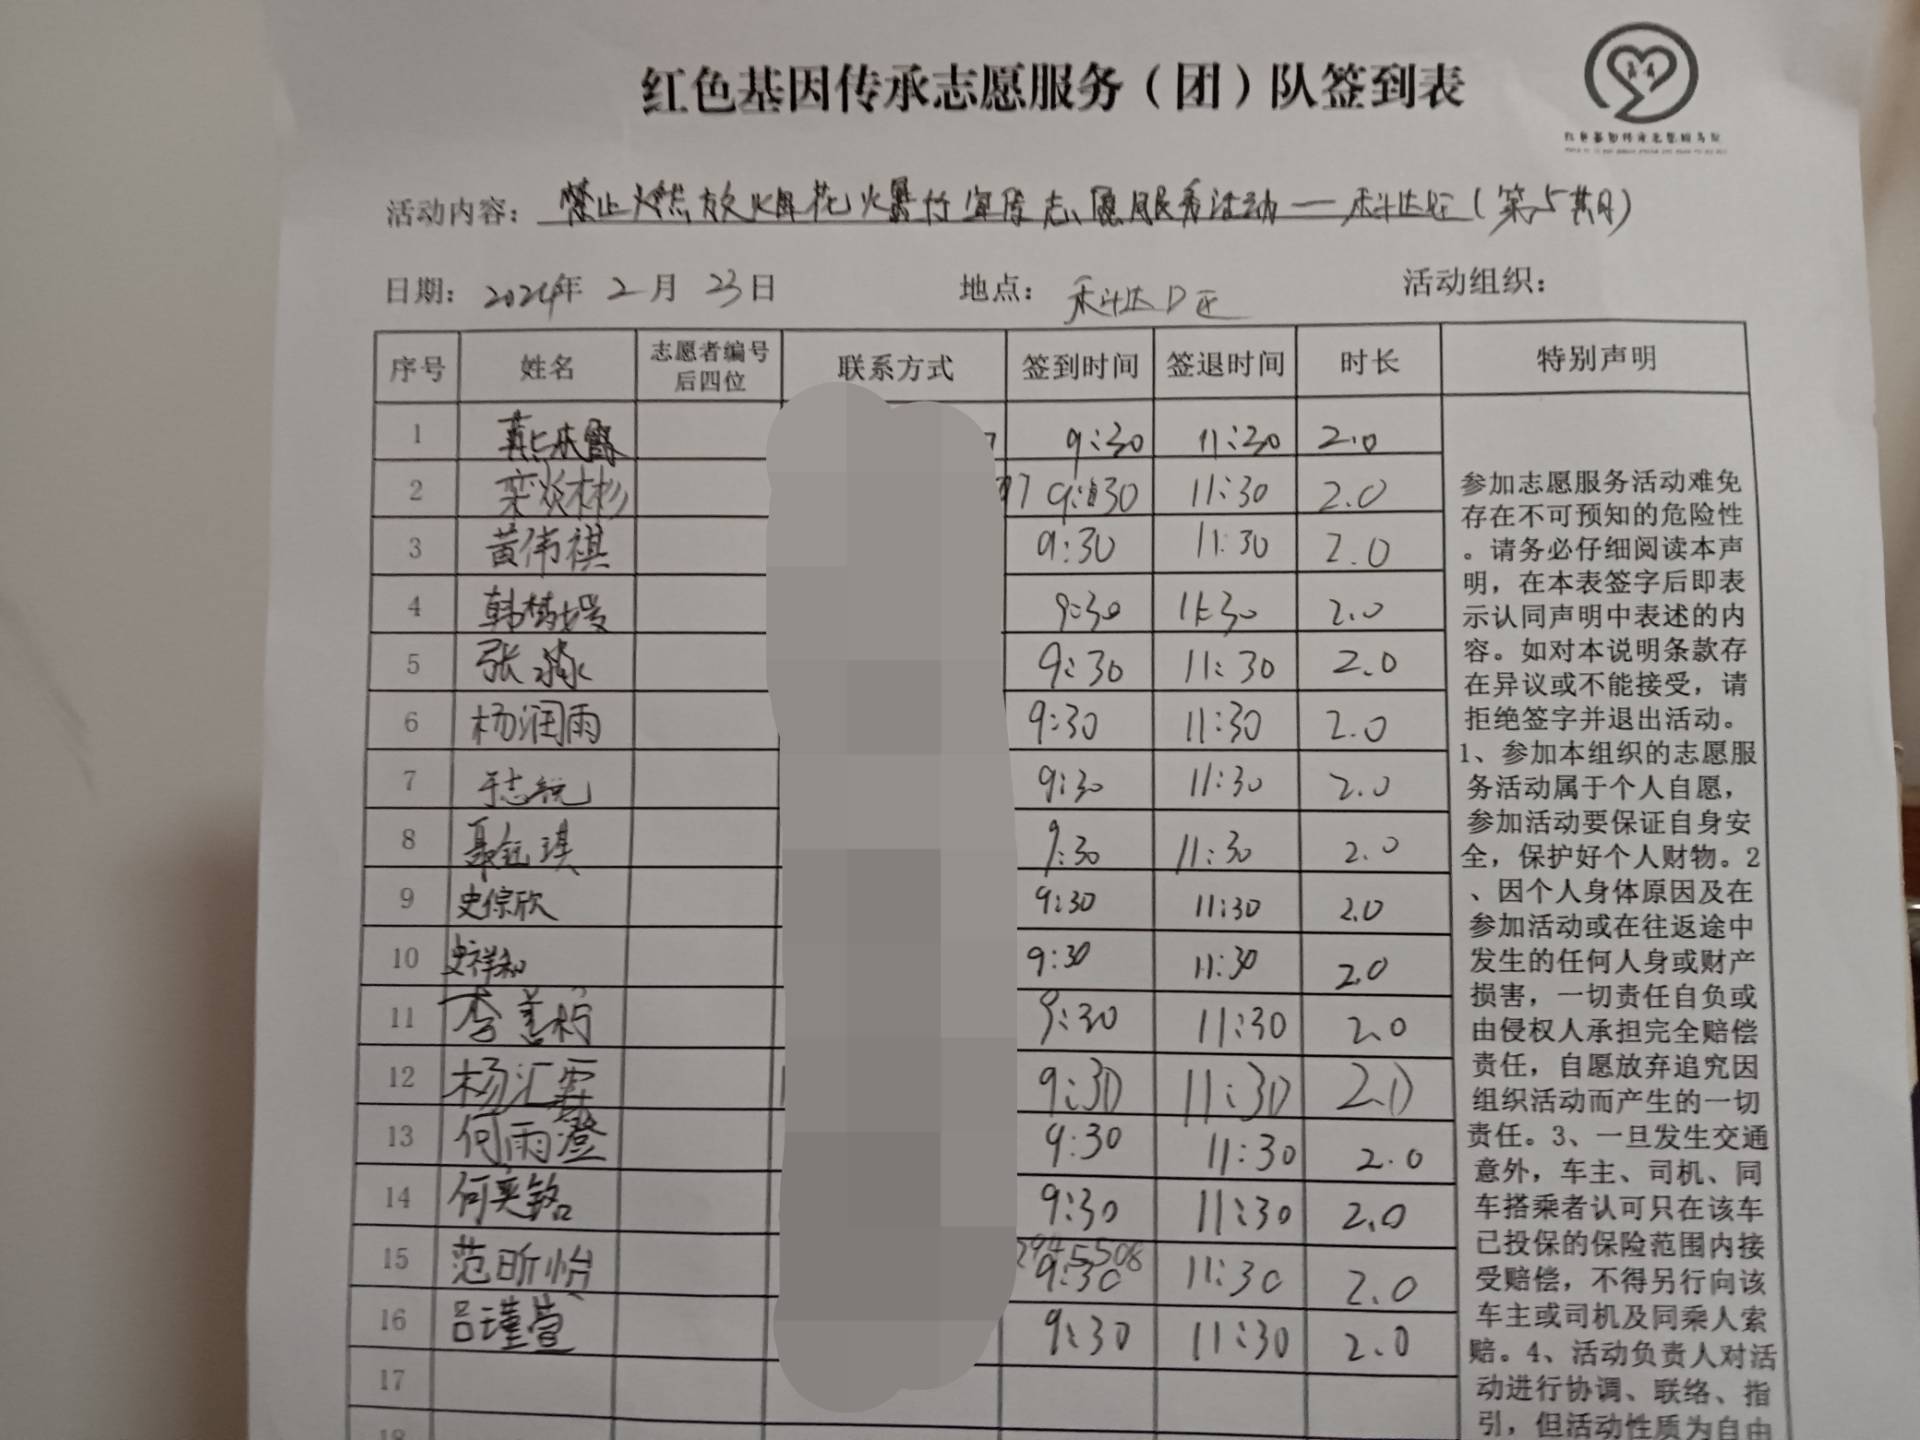 红色基因传承志愿服务（团）队签到表
红色基因传承志愿服务队
活动内容： 禁止燃放烟花火暴竹宣传志愿服务活动——禾斗达区（第5期）
日期： 2024年 2月 23日 地点： 禾斗达D区 活动组织：
序号 姓名 志愿者编号后四位 联系方式 签到时间 签退时间 时长 特别声明
1 9:30 11:30 2.0
2 栾 97 9:30 11:30 2.0
3 黄伟祺 9:30 11:30 2.0
4 韩梦媛 9:30 11:30 2.0
5 张淼 9:30 11:30 2.0
6 杨润雨 9:30 11:30 2.0
7 于志锐 9:30 11:30 2.0
8 聂钰琪 9:30 11:30 2.0
9 史倧欣 9:30 11:30 2.0
10 史祥和 9:30 11:30 2.0
11 李美 9:30 11:30 2.0
12 杨汇霖 9:30 11:30 2.0
13 何雨澄 9:30 11:30 2.0
14 何奕铭 9:30 11:30 2.0
15 范昕怡 2945508 9:30 11:30 2.0
16 吕瑾萱 9:30 11:30 2.0
17
18
参加志愿服务活动难免
存在不可预知的危险性
。请务必仔细阅读本声
明，在本表签字后即表
示认同声明中表述的内
容。如对本说明条款存
在异议或不能接受，请
拒绝签字并退出活动。
1、参加本组织的志愿服
务活动属于个人自愿，
参加活动要保证自身安
全，保护好个人财物。2
、因个人身体原因及在
参加活动或在往返途中
发生的任何人身或财产
损害，一切责任自负或
由侵权人承担完全赔偿
责任，自愿放弃追究因
组织活动而产生的一切
责任。3、一旦发生交通
意外，车主、司机、同
车搭乘者认可只在该车
已投保的保险范围内接
受赔偿，不得另行向该
车主或司机及同乘人索
赔。4、活动负责人对活
动进行协调、联络、指
引，但活动性质为自由